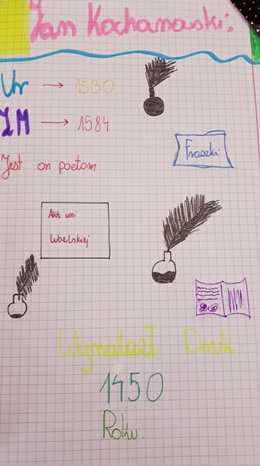 Jan Kochanowski:
Ur → 1530
ZM → 1584
Jest on poetom
Fraszki
Akt unii
Lubelskiej
Wynalazł Druk
1450
Roku.